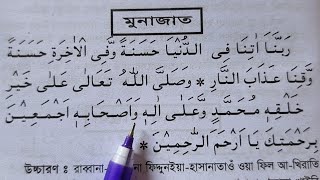 মুনাজাত
رَبَّنَا اٰتِنَا فِى الدُّنْيَا حَسَنَةً وَّفِى الْاٰخِرَةِ حَسَنَةً
وَّقِنَا عَذَابَ النَّارِ * وَصَلَّى اللّٰهُ تَعَالٰى عَلٰى خَيْرِ
خَلْقِهٖ مُحَمَّدٍ وَّعَلٰى اٰلِهٖ وَاَصْحَابِهٖ اَجْمَعِيْنَ
بِرَحْمَتِكَ يَا اَرْحَمَ الرّٰحِمِيْنَ *
উচ্চারণ : রাব্বানা- না ফিদ্দুনইয়া-হাসানাতাওঁ ওয়া ফিল আ-খিরাতি